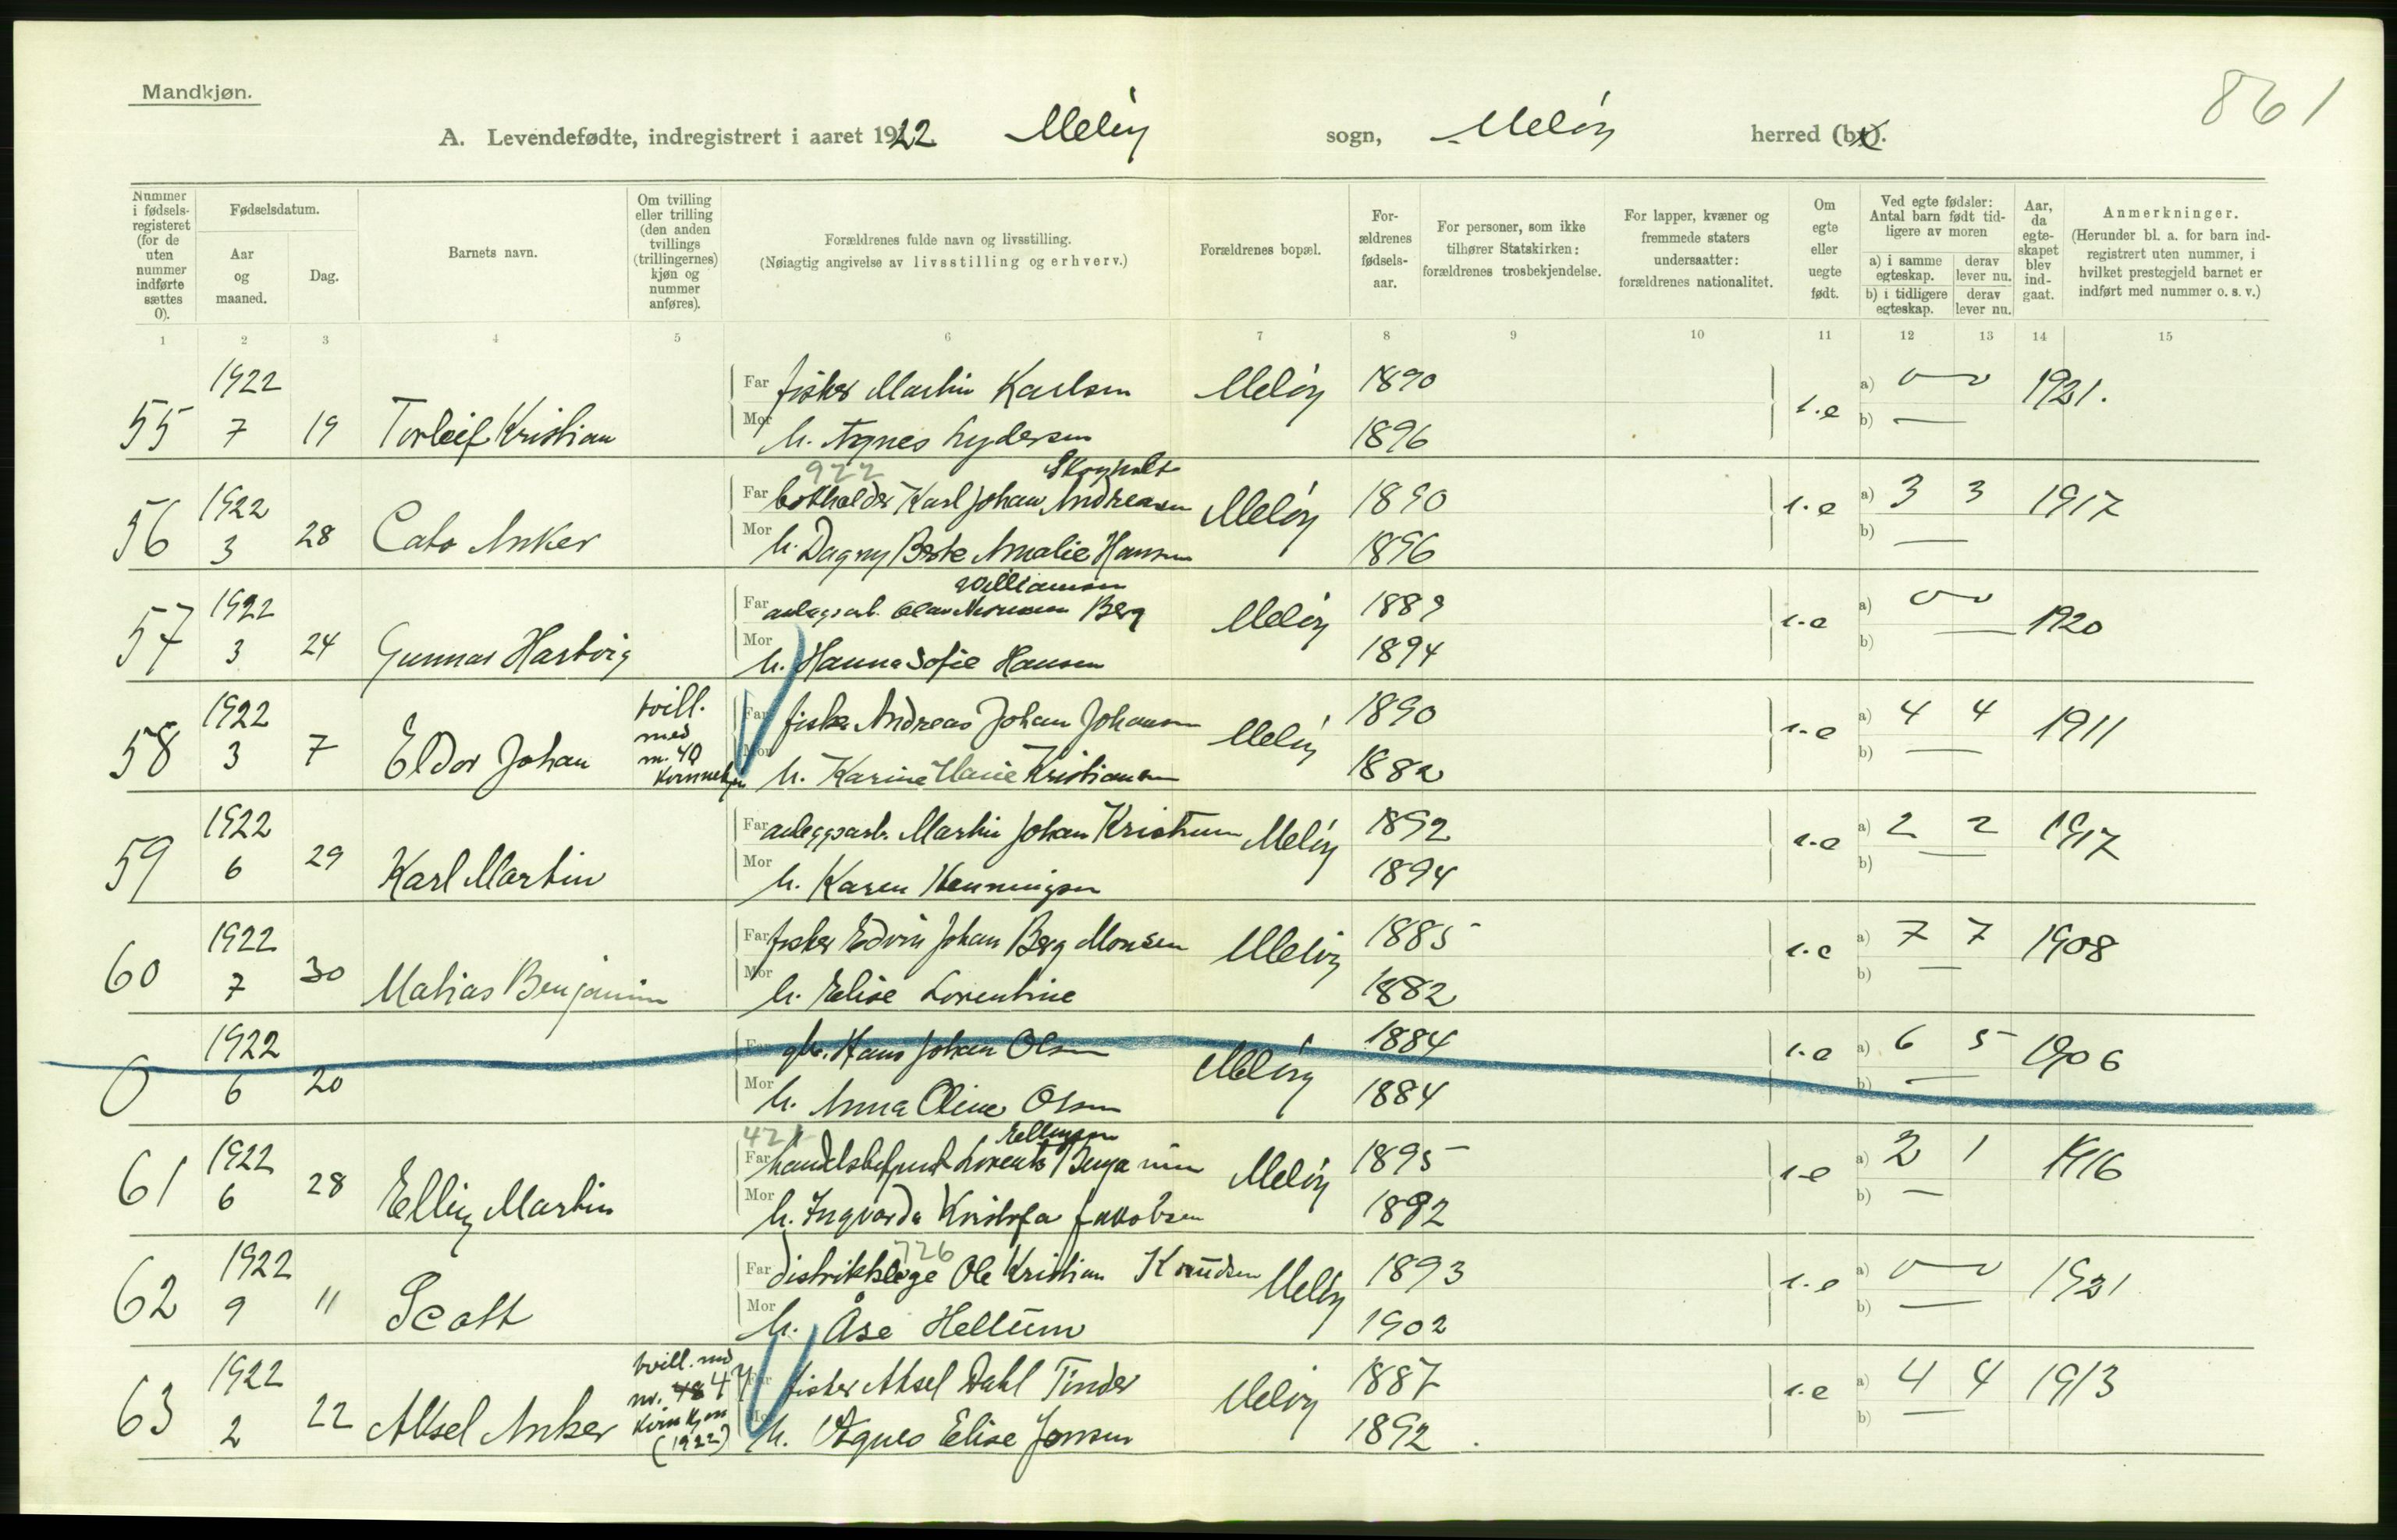 861
Mandkjøn.
A. Levendefødte, indregistrert i aaret 1922 Meløy sogn, Meløy herred (by).
Nummer i fødsels-registeret (for de uten nummer indførte sættes 0).
Fødselsdatum.
Aar og maaned.
Dag.
Barnets navn.
Om tvilling eller trilling (den anden tvillings (trillingernes) kjøn og nummer anføres).
Forældrenes fulde navn og livsstilling.
(Nøiagtig angivelse av livsstilling og erhverv.)
Forældrenes bopæl.
For-ældrenes fødsels-aar.
For personer, som ikke tilhører Statskirken: forældrenes trosbekjendelse.
For lapper, kvæner og fremmede staters undersaatter: forældrenes nationalitet.
Om egte eller uegte født.
Ved egte fødsler: Antal barn født tid-ligere av moren
a) i samme egteskap. derav lever nu.
b) i tidligere egteskap. derav lever nu.
Aar, da egte-skapet blev ind-gaat.
Anmerkninger.
(Herunder bl. a. for barn ind-registrert uten nummer, i hvilket prestegjeld barnet er indført med nummer o. s. v.)
1 2 3 4 5 6 7 8 9 10 11 12 13 14 15
55 1922 7 19 Torleif Kristian
Far fisker Martin Karlsen Meløy 1890 1.e a) 0 0 1921.
Mor h. Agnes Lydersen 1896 b) —
922 Skogholt
56 1922 3 28 Cato Anker
Far Karl Johan Andreasen Meløy 1890 1.e a) 3 3 1917
Mor h. Dagny Berte Amalie Hansen 1896 b) —
Williamsen
57 1922 3 24 Gunnar Hartvig
Far anlegsarb. Olav Berg Meløy 1889 1.e a) 0 0 1920
Mor h. Hanna Sofie Hansen 1894 b) —
58 1922 3 7 Eldor Johan tvill. med nr. 40
Far fisker Andreas Johan Johansen Meløy 1890 1.e a) 4 4 1911
Mor h. Karine Marie Kristiansen 1882 b) —
59 1922 6 29 Karl Martin
Far anleggsarb. Martin Johan Kristensen Meløy 1892 1.e a) 2 2 1917
Mor h. Karen Henningsen 1894 b) —
60 1922 7 30 Matias Benjamin
Far fisker Edvin Johan Berg Monsen Meløy 1885 1.e a) 7 7 1908
Mor h. Elise Lorentine 1882 b) —
0 1922 6 20
Far gbr. Hans Johan Olsen Meløy 1884 1.e a) 6 5 1906
Mor h. Anna Oline Olsen 1884 b) —
421 Ellingsen
61 1922 6 28 Elling Martin
Far handelsbetjent Lorents Benjamin Meløy 1895 1.e a) 2 1 1916
Mor h. Ingvarda Kristofa Jakobsen 1892 b) —
726
62 1922 9 11 Scott
Far distriktslæge Ole Kristian Knudsen Meløy 1893 1.e a) 0 0 1921
Mor h. Åse Hellum 1902 b) —
63 1922 2 22 Aksel Anker tvill. med nr. 48 47 kvinkjøn (1922)
Far fisker Aksel Dahl Tinder Meløy 1887 1.e a) 4 4 1913
Mor h. Agnes Elise Jensen 1892 b) —